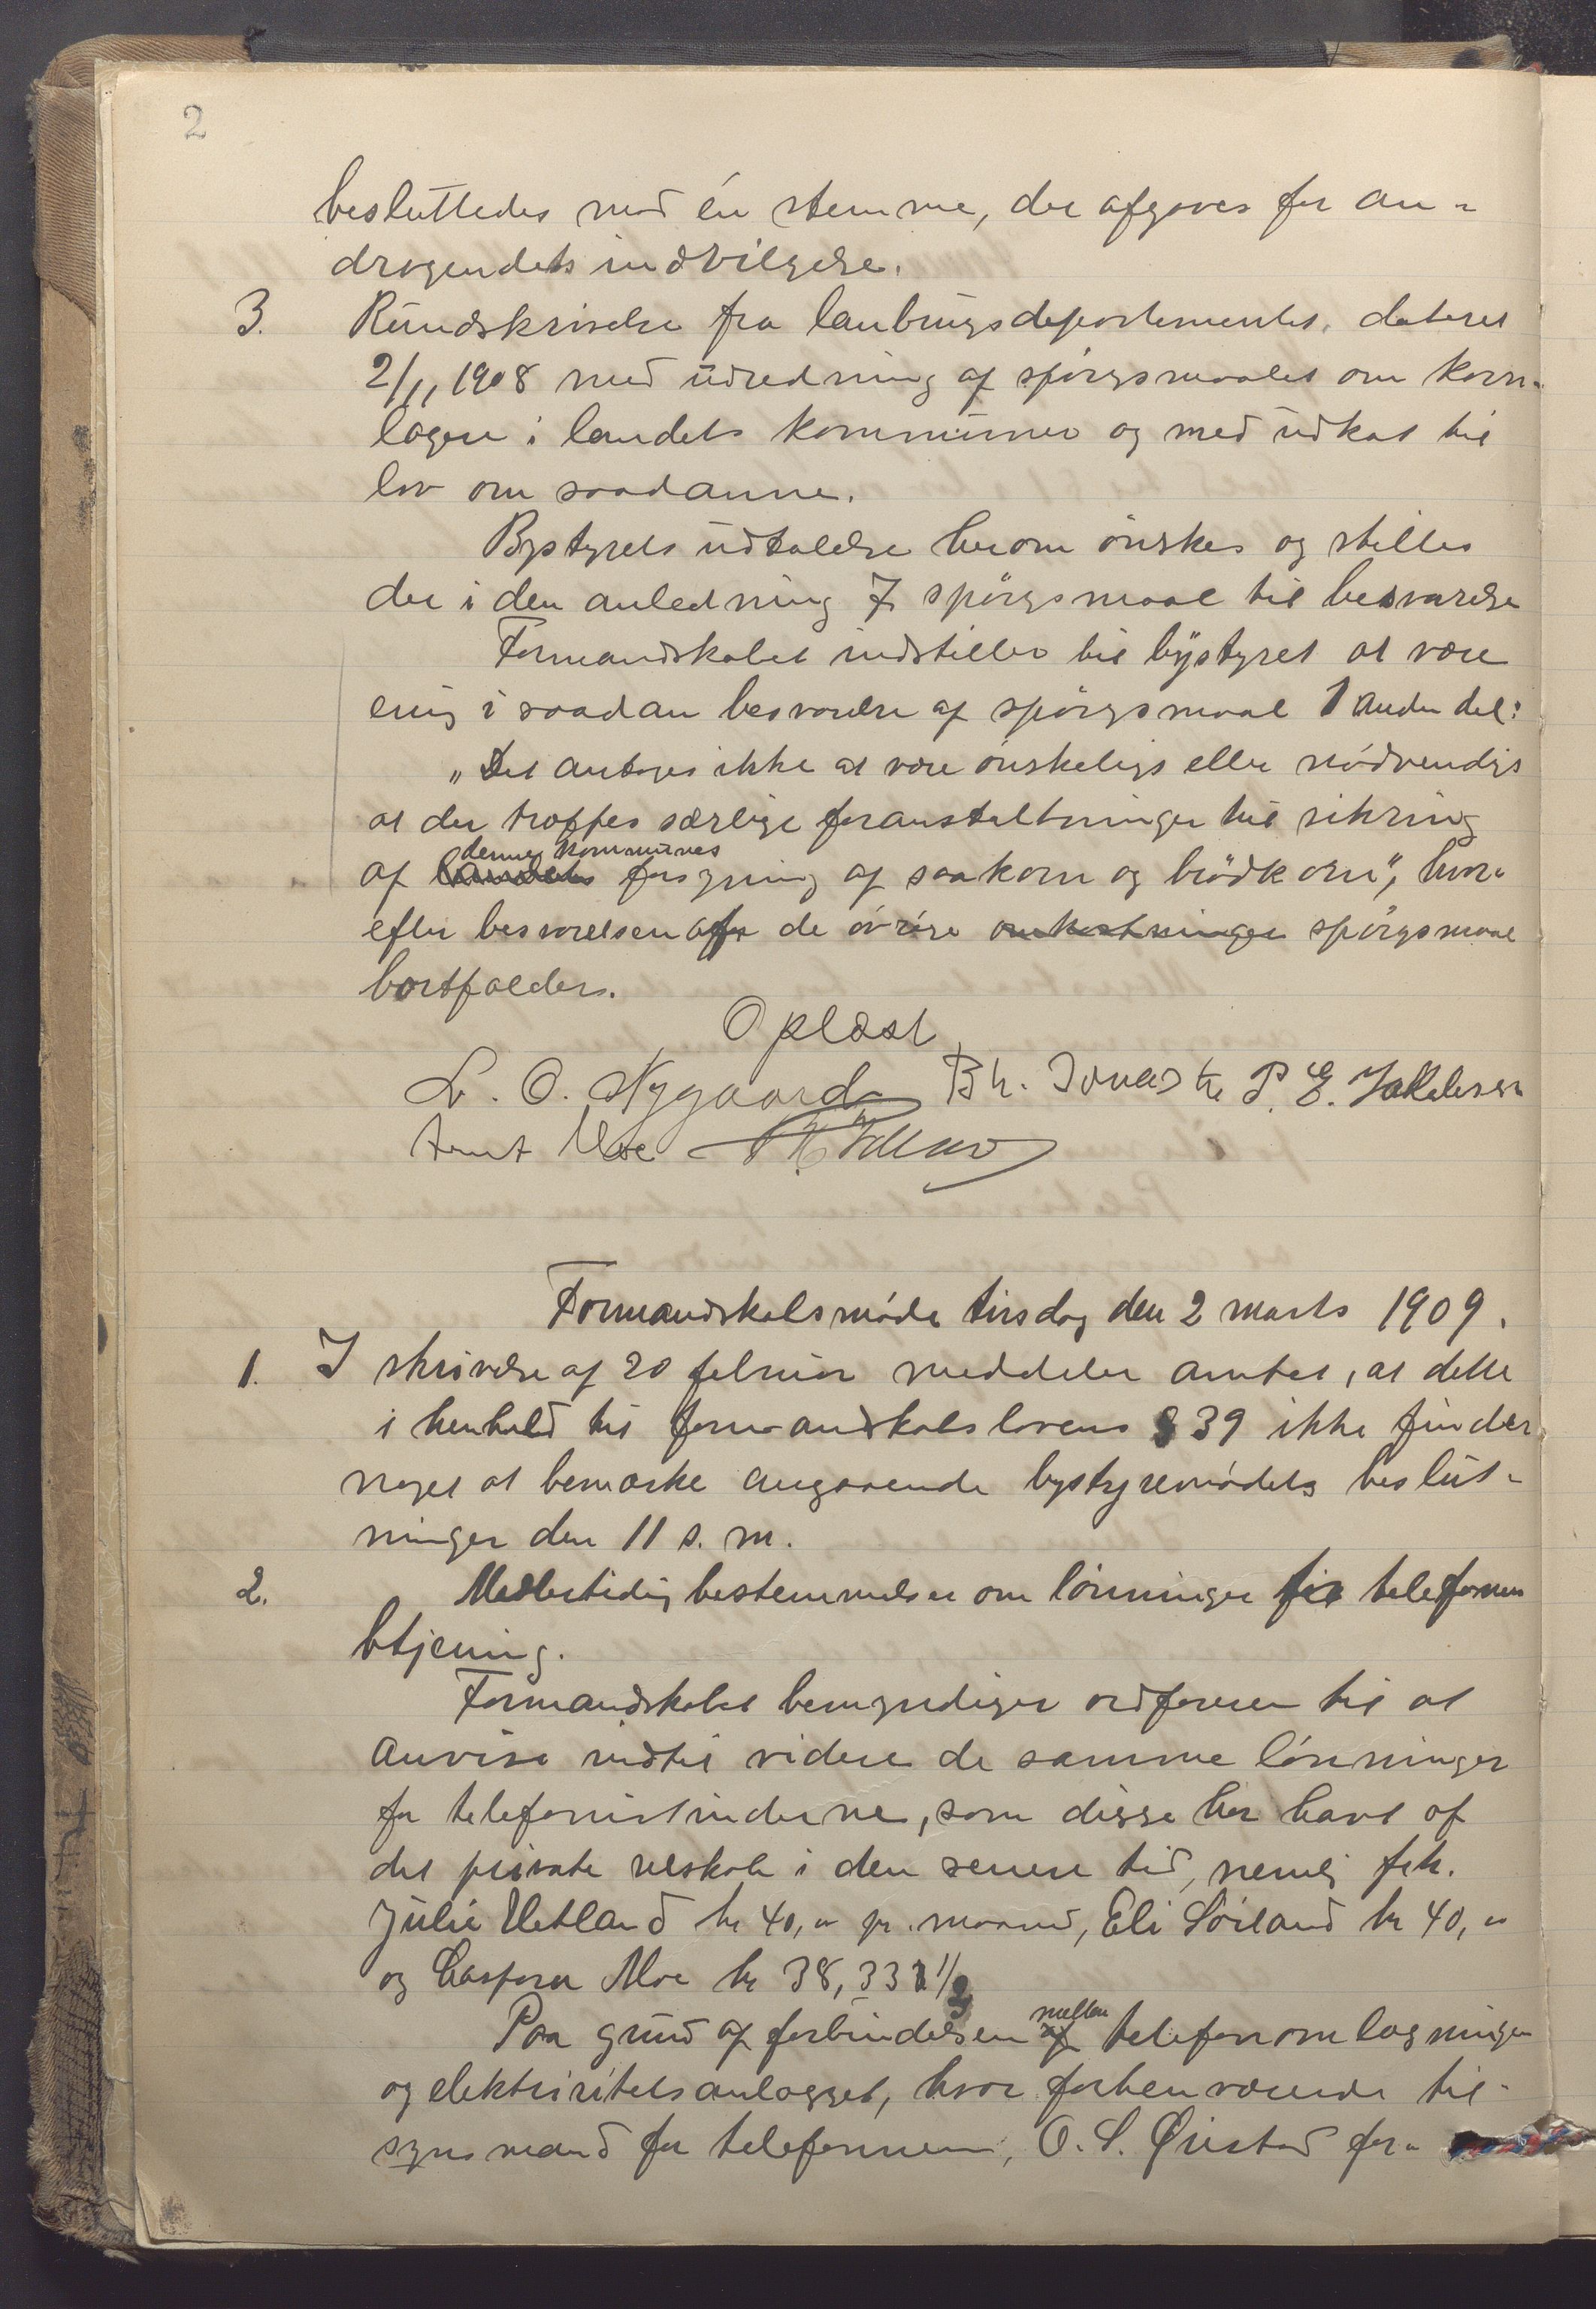 2
besluttedes mod én stemme, der afgaves for an-
dragendets indvilgelse.
3. Rundskrivelse fra landbrugsdepartementet, dateret
2/11 1908 med udredning af spørgsmaalet om korn-
lagere i landets kommuner og med udkast til
lov om saadanne.
Bystyrets udtalelse herom ønskes og stilles
der i den anledning 7 spørgsmaal til besvarelse
Formandskabet indstiller til bystyret at være
enig i saadan besvarelse af spørgsmaal 1 anden del:
„Det antages ikke at være ønskeligt eller nødvendigt
at der træffes særlige foranstaltninger til sikring
denne kommunes
af landets forsyning af saakorn og brødkorn", hvor-
efter besvarelsen af de øvrige omkostninger spørgsmaal
bortfalder.
Oplæst
L. O. Nygaard Bh. Jonas P. E. Jakobsen
Moe
Formandskabsmøde tirsdag den 2 marts 1909.
1. I skrivelse af 20 februar meddeler amtet, at dette
i henhold til formandskabslovens § 39 ikke finder
noget at bemærke angaaende bystyremødets beslut-
ninger den 11 s. m.
2. Midlertidig bestemmelse om lønninger for telefonen
btjening.
Formandskabet bemyndiger ordføreren til at
anvise indtil videre de samme lønninger
for telefonistinderne, som disse har havt af
det private selskab i den senere tid, nemlig frk.
Julie Hetland kr 40,„ pr. maaned, Eli Søiland kr 40,„
og Caspara Moe kr 38,33 1/3
mellem
Paa grund af forbindelsen af telefonomlægningen
og elektricitetsanlægget, hvor forhenværende til-
synsmand for telefonen, O. S. Ørstad for-